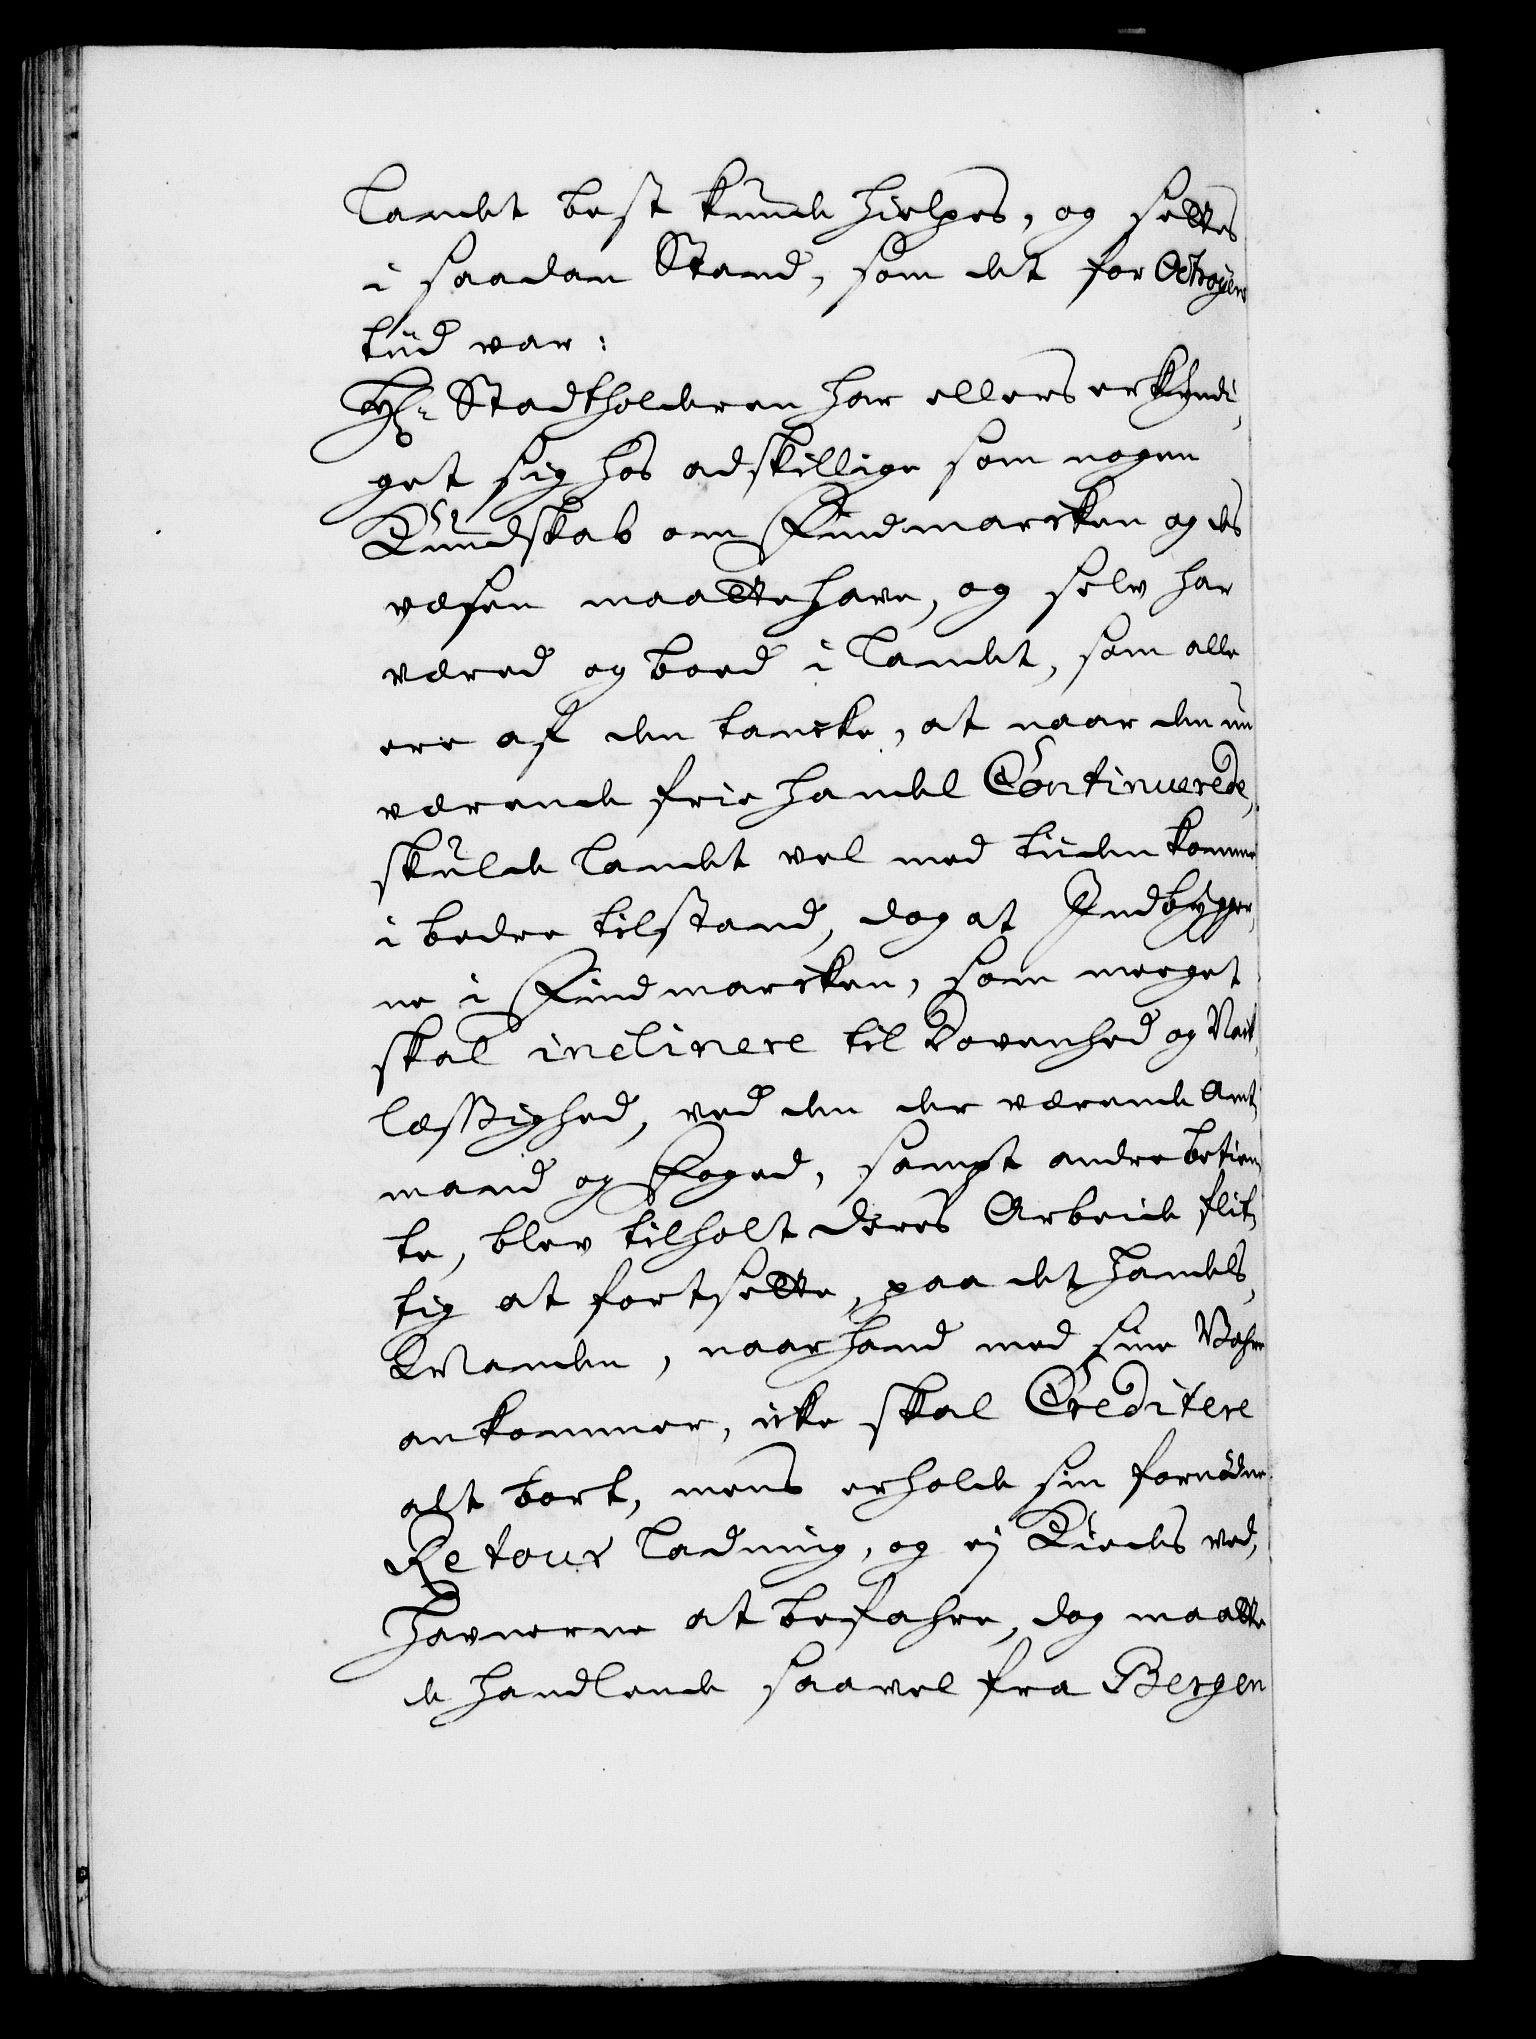 landet best kunde hielpes, og settes
i saadan Stand, som det for Octroyens
tiid var:
Hr: Stadtholderen har ellers erkyndi-
get sig hos adskillige som nogen
Kundskab om Findmarcken og des
væsen maatte have, og selv har
væred og boed i landet, som alle
ere af den tancke, at naar den nu
værende frie handel Continuerede,
skulde landet vel med tiiden komme
i bedre tilstand, dog at Indbygger-
ne i Findmarcken, som meeget
skal inclinere til Dovenhed og
læssighed, ved den der værende Amt-
mand og Foged, sampt andre betien-
te, blev tilholt deres Arbeide flit-
tig at fortsette, paa det handels
Manden, naar hand med sine Vahre
ankommer, icke skal Creditere
alt bort, mens erholde sin fornødne
Retour ladning, og ej Kiedes ved,
Havnerne at befahre, dog maatte
de handlende saavel fra Bergen